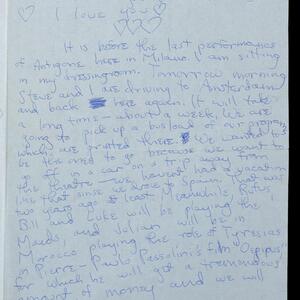 I love you
It is before the last performance
of Antigone here in Milano. I am sitting
in my dressingroom. Tomorrow morning
Steve and I are driving to Amsterdam
and back here again. (It will take
a long time - about a week, We are
going to pick up a busload of our programs
which are printed there. We wanted to
be the ones to go because we want to
be off in a car on a trip away from
the theatre - we haven't had a vacation
like that since we drove to Spain
two years ago at least. Meanwhile, Rufus,
Bill and Luke will be playing the
Maids, and Julian will be in
Morocco playing the role of Tyresias
in Pierre-Paulo Passolini's film "Oedipus"
for which he will get a tremendous
amount of money and we will